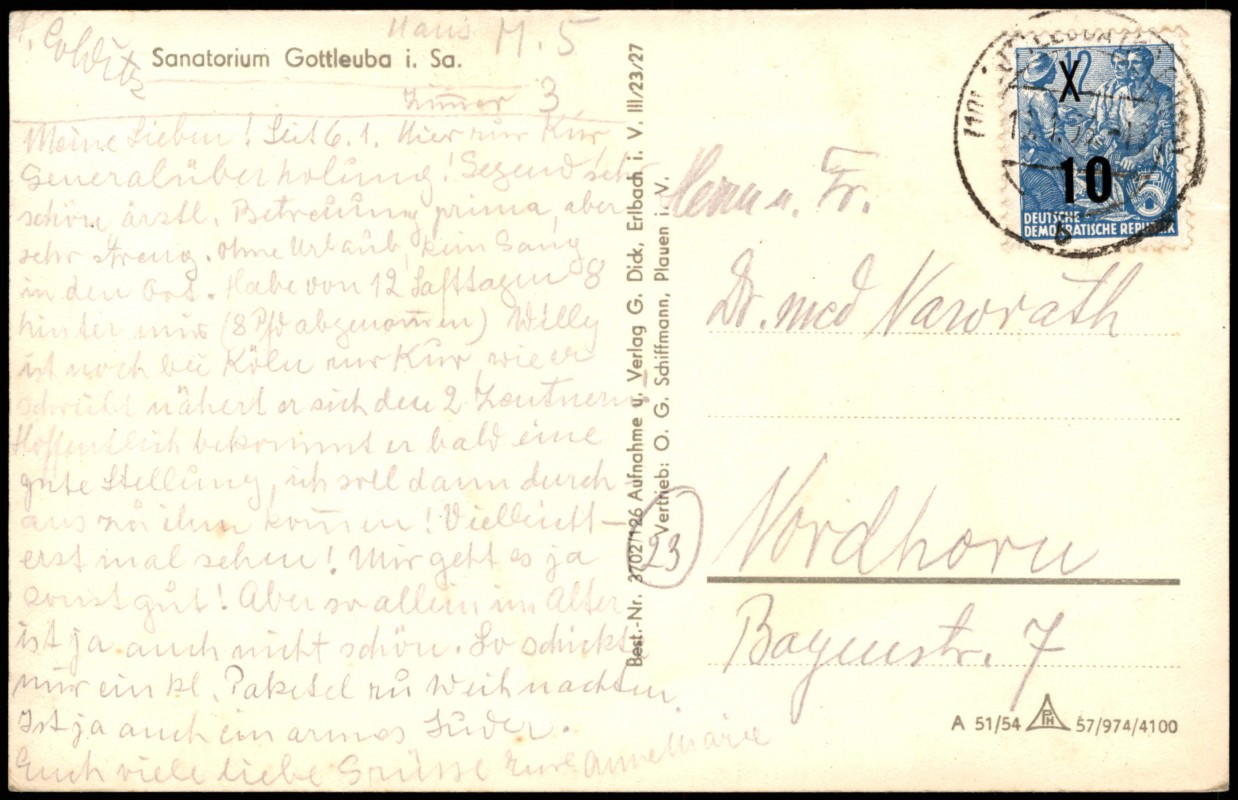 Colditz
Haus M. 5
Sanatorium Gottleuba i. Sa.
Zimmer 3
Meine Lieben! Seit 6. 1. hier zur Kur,
Generalüberholung! Gegend sehr
schön, ärztl. Betreuung prima, aber
sehr streng. Ohne Urlaub kein Gang
in den Ort. Habe von 12 Safttagen 8
hinter mir (8 Pfd abgenomen) Willy
ist noch bei Köln zur Kur, wie er
schreibt nähert er sich den 2 Zentnern!
Hoffentlich bekommt er bald eine
gute Stellung, ich soll dann durch-
aus zu ihm komen! Vielleicht –
erst mal sehen! Mir geht es ja
sonst gut! Aber so allein im Alter
ist ja auch nicht schön. So schickte
mir ein kl. Paketel zu Weihnachten.
Ist ja auch ein armes Luder.
Euch viele liebe Grüsse Eure Annemarie
Best.-Nr. 3702/126 Aufnahme u. Verlag G. Dick, Erlbach i. V. III/23/27
Vertrieb: O. G. Schiffmann, Plauen i. V.
X
10
5
DEUTSCHE
DEMOKRATISCHE REPUBLIK
b
Herrn u. Fr.
Dr. med Nawrath
(23) Nordhorn
Bayernstr. 7
A 51/54 PH 57/974/4100